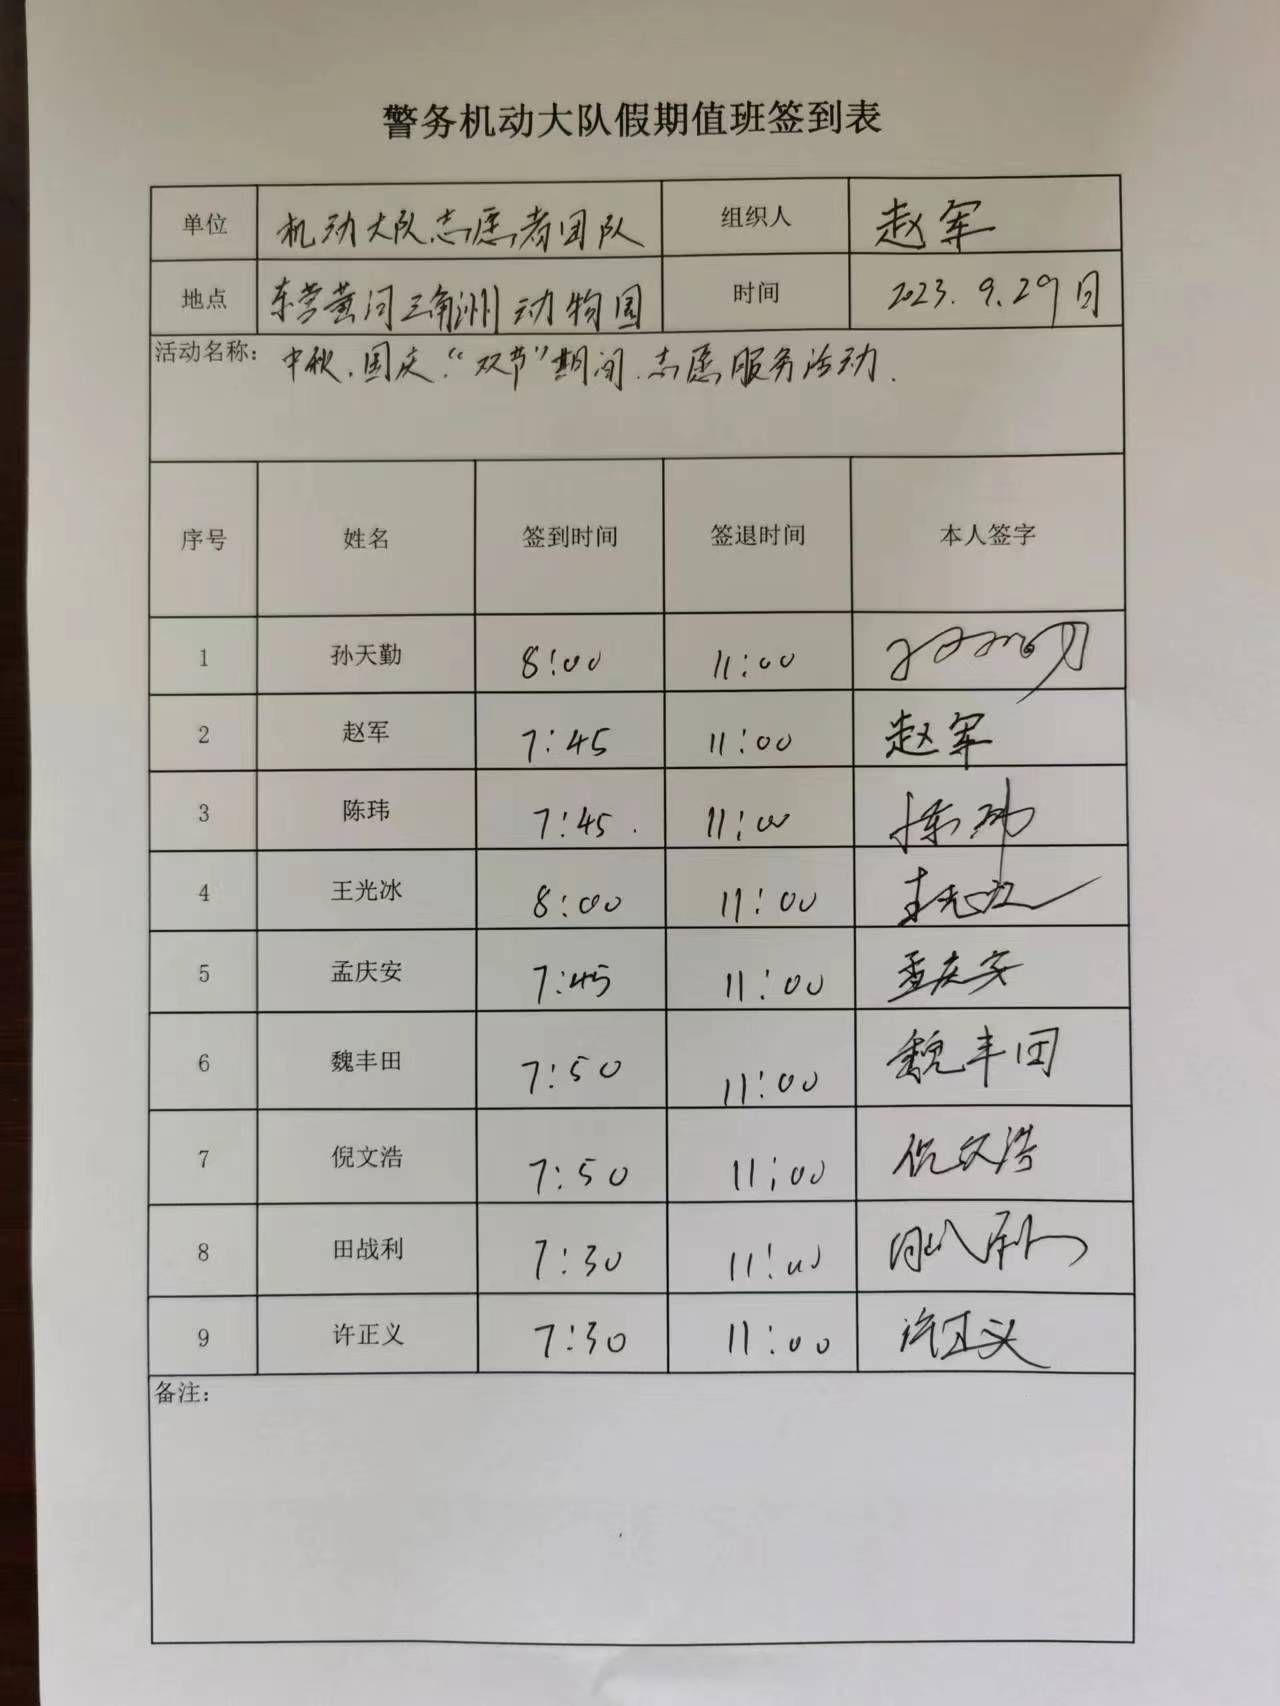 警务机动大队假期值班签到表
单位 机动大队志愿者团队 组织人 赵军
地点 东营黄河三角洲动物园 时间 2023.9.29日
活动名称: 中秋、国庆“双节”期间志愿服务活动.
序号 姓名 签到时间 签退时间 本人签字
1 孙天勤 8:00 11:00
2 赵军 7:45 11:00 赵军
3 陈玮 7:45. 11:00 陈玮
4 王光冰 8:00 11:00 王光冰
5 孟庆安 7:45 11:00 孟庆安
6 魏丰田 7:50 11:00 魏丰田
7 倪文浩 7:50 11:00 倪文浩
8 田战利 7:30 11:00
9 许正义 7:30 11:00 许正义
备注: